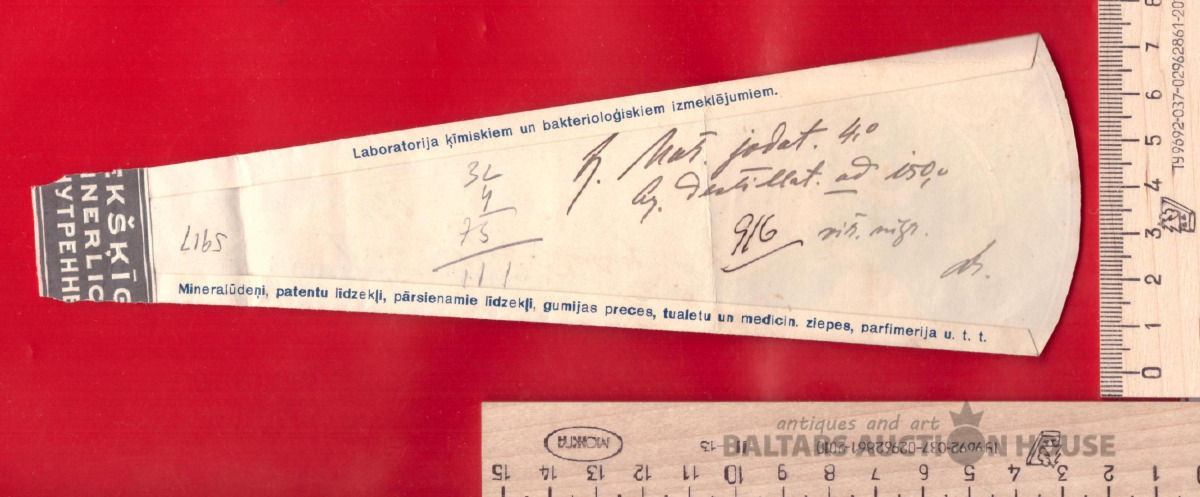 Laboratorija ķīmiskiem un bakterioloģiskiem izmeklējumiem.
32
4
75
111
Nat. jodat. 4,0
Aq. destillat. ad 150,0
916
5917
Mineralūdeņi, patentu līdzekļi, pārsienamie līdzekļi, gumijas preces, tualetu un medicin. ziepes, parfimerija u. t. t.
EKŠĶĪG
INERLIC
НУТРЕННЕ
antiques and art
BALTARS AUCTION HOUSE
ТУ9692-037-02962861-20
7
6
5
4
3
2
1
0
ТУ9692-037-02962861-2010
15 14 13 12 11 10 9 8 7 6 5 4 3 2 1